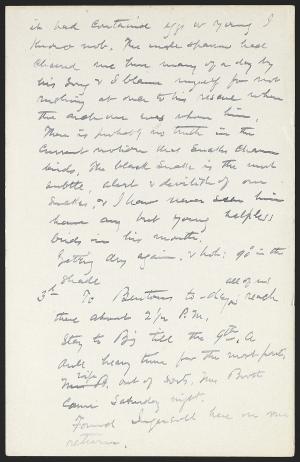 it had contained eggs or young I
know not. The indigo sparrow had
cheered me here many of a day by
his song & I blame myself for not
rushing at once to his rescue when
the arch enemy was upon him.
There is probably no truth in the
current notion that snakes charm
birds. The black snake is the most
subtle, alert & devilish of our
snakes, & I have never seen him
have any but young, helpless
birds in his mouth.
Getting dry again, & hot; 90° in the
shade
3d To Bentons to-day, all of us reach
there about 2 1/2 P.M.
Stay to B's till the 9th. A
dull heavy time for the most part,
Wife out of sorts, Mrs
came Saturday night.
Found Ingersoll here on our
return.